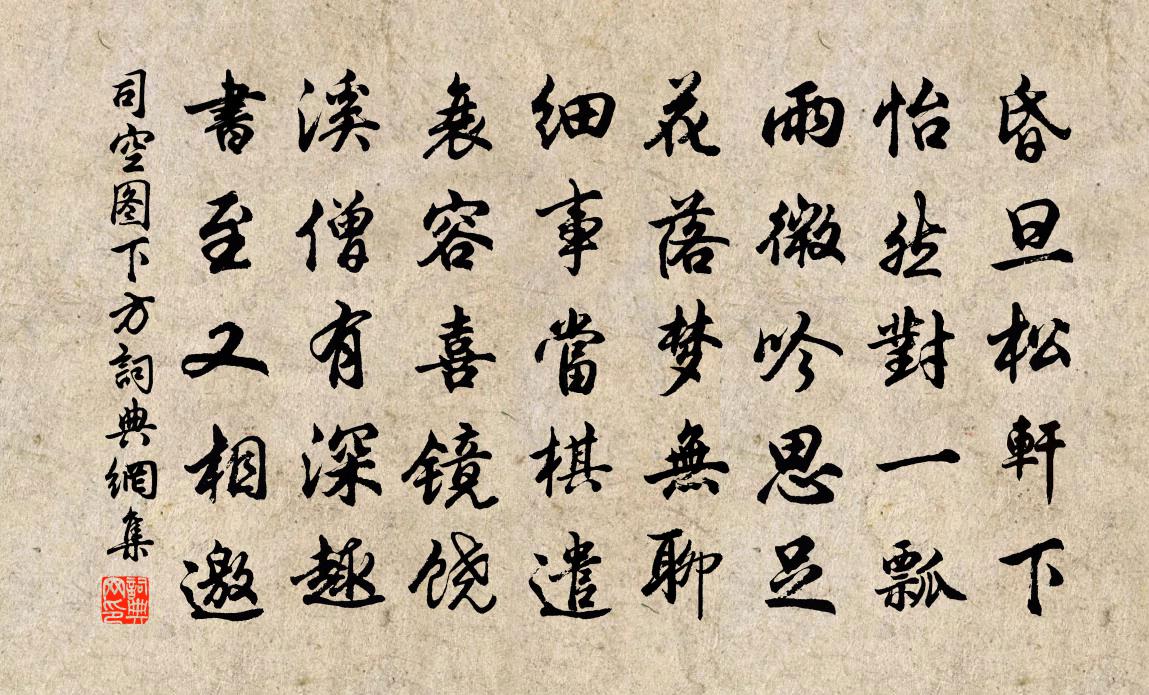 昏旦松軒下
怡然對一瓢
雨微吟思足
花落梦無聊
细事當棋遣
衰容喜镜饶
溪僧有深趣
書至又相邀
司空图下方詞典網集
詞典网印